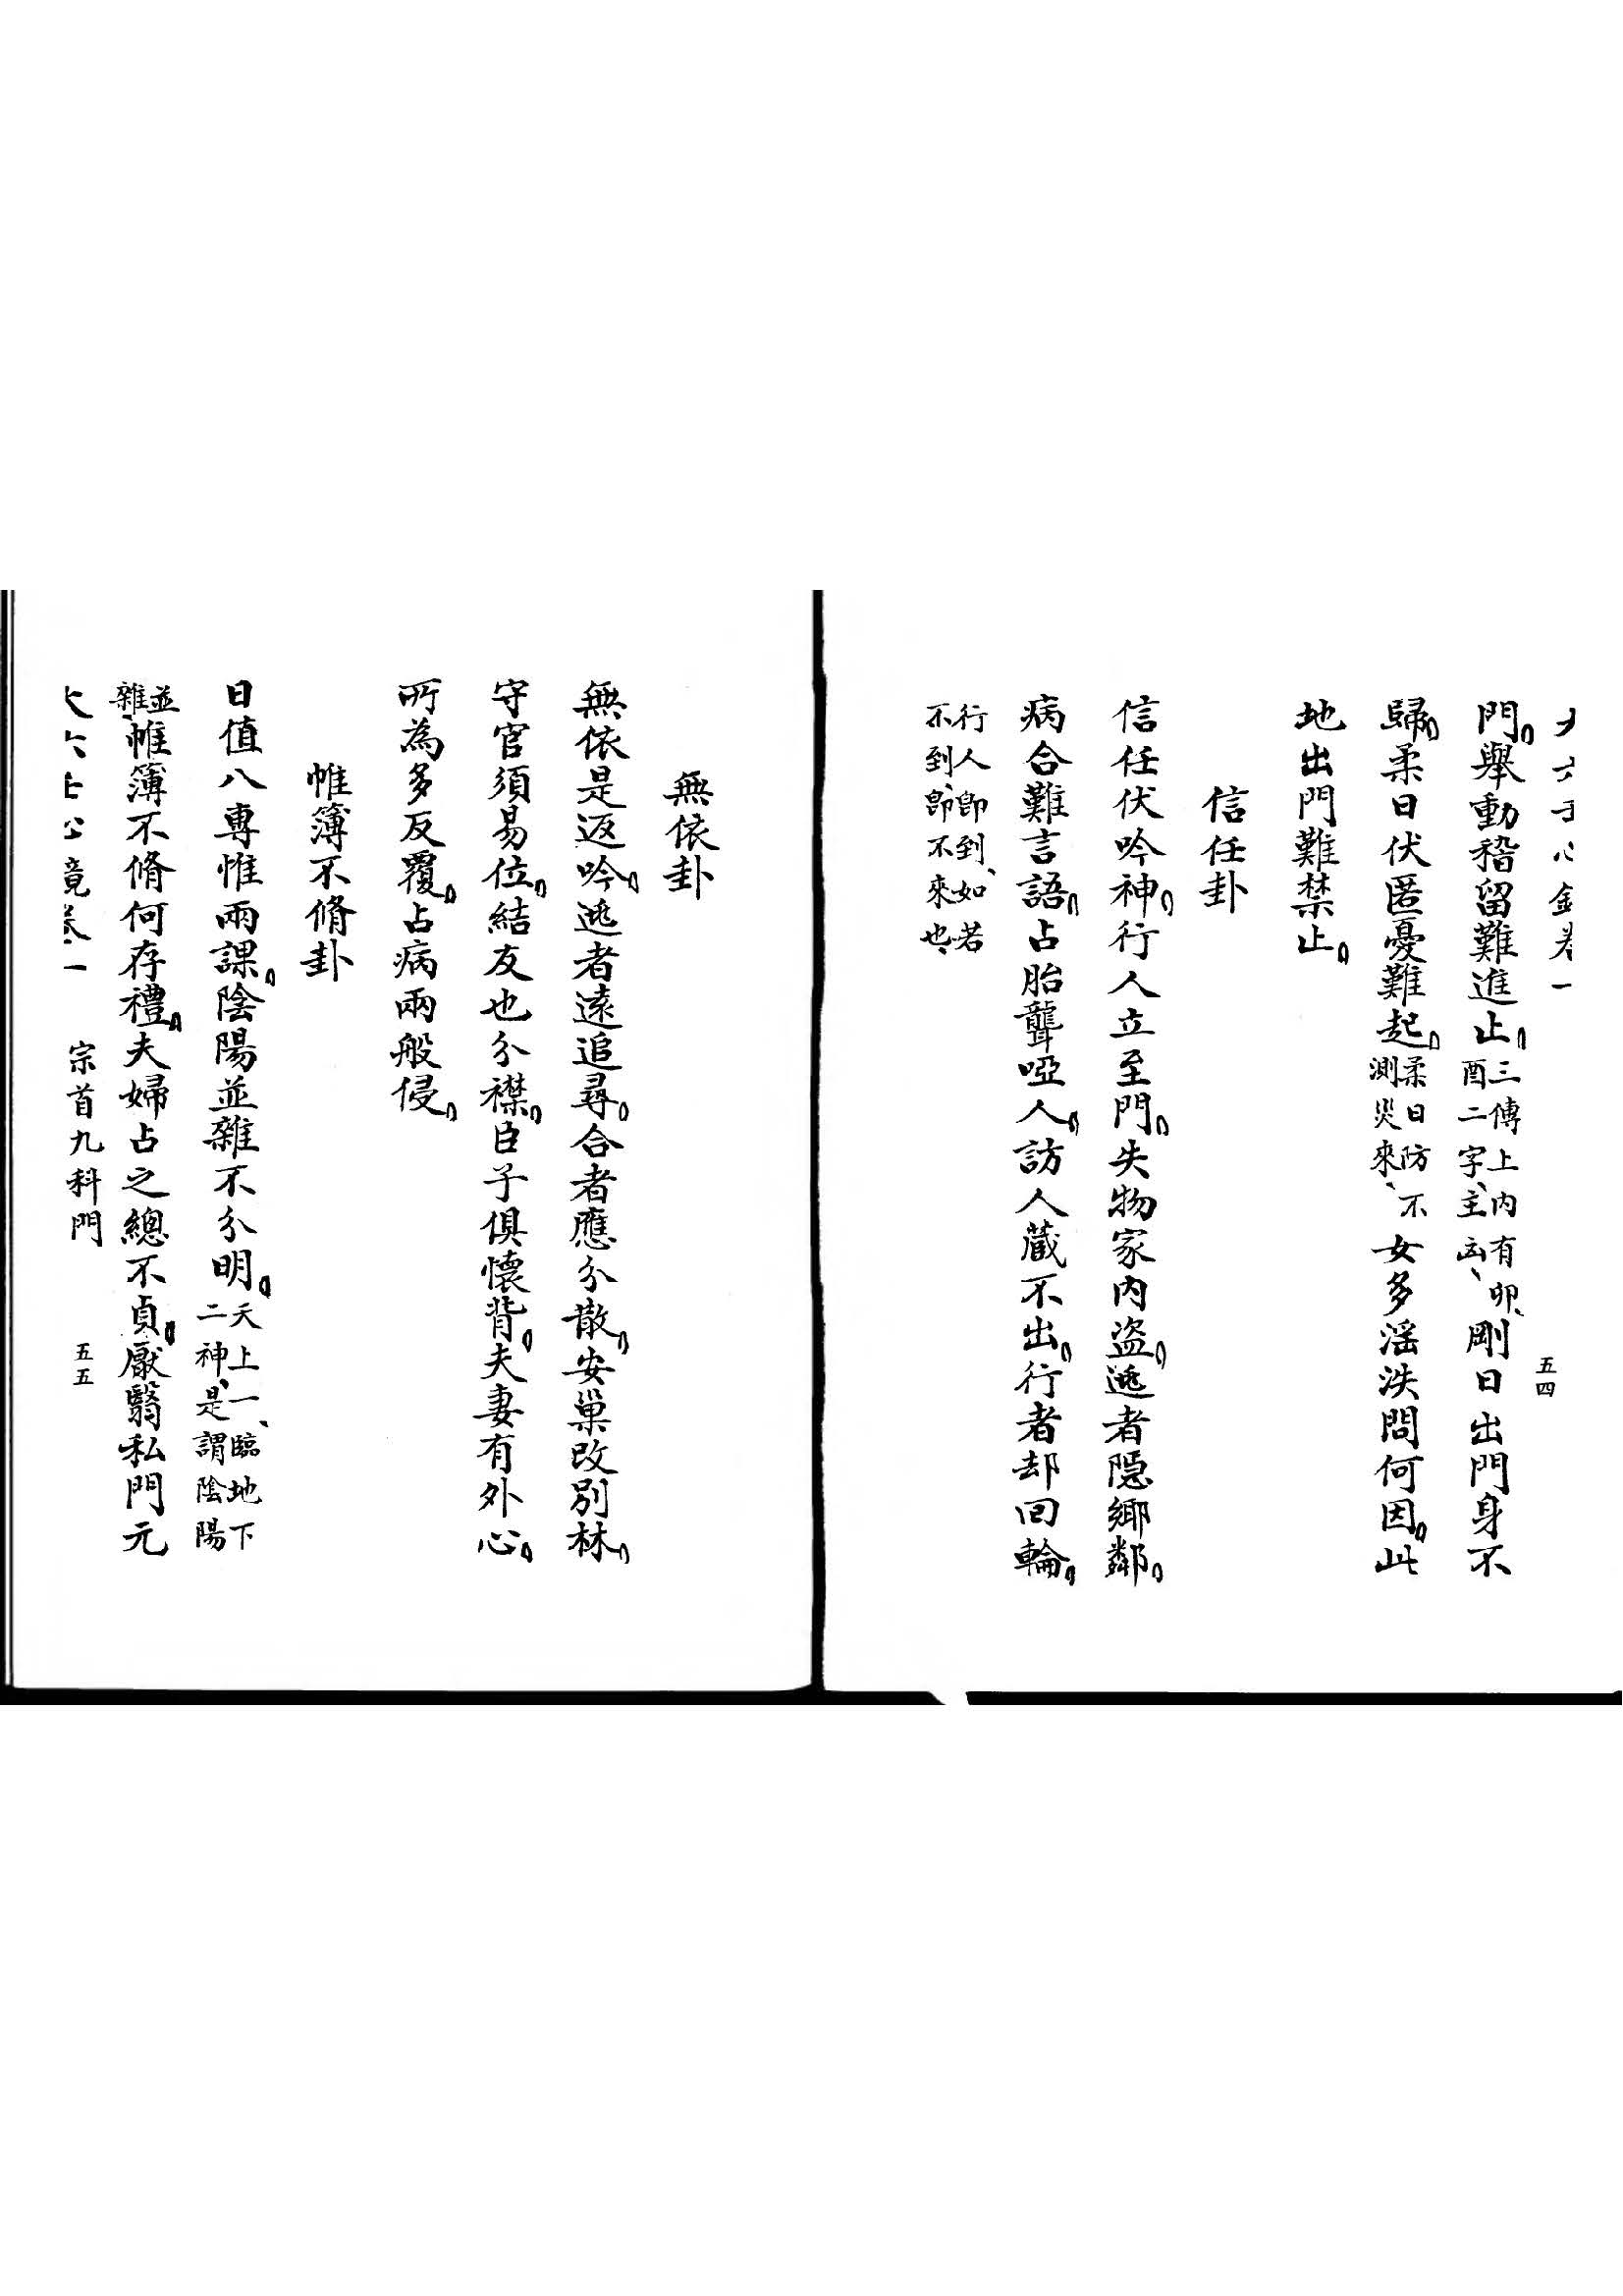 五四
門。舉動稽留難進止。三傳上內有卯、酉二字、主凶、剛日出門身不
歸。柔日伏匿憂難起。柔日防不測災來、女多淫泆問何因。此
地出門難禁止。
信任卦
信任伏吟神。行人立至門。失物家內盜。逃者隱鄉鄰。
病合難言語。占胎聾啞人。訪人藏不出。行者却回輪。
行人即到、如若不到、即不來也、
無依卦
無依是返吟。逃者遠追尋。合者應分散。安巢改別林。
守官須易位。結友也分襟。臣子俱懷背。夫妻有外心。
所為多反覆。占病兩般侵。
帷簿不脩卦
日值八專惟兩課。陰陽並雜不分明。天上一、臨地下二神、是謂陰陽
並雜、帷簿不脩何存禮。夫婦占之總不貞。厭翳私門元
宗首九科門 五五